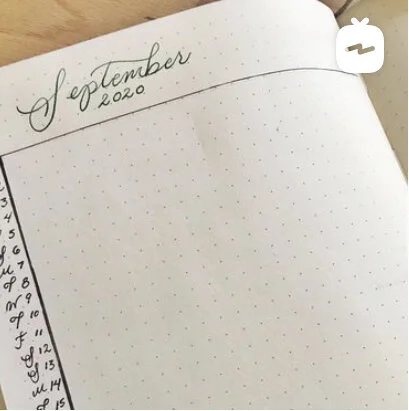 September
2020
3
4
5
S 6
M 7
T 8
W 9
T 10
F 11
S 12
S 13
M 14
T 15